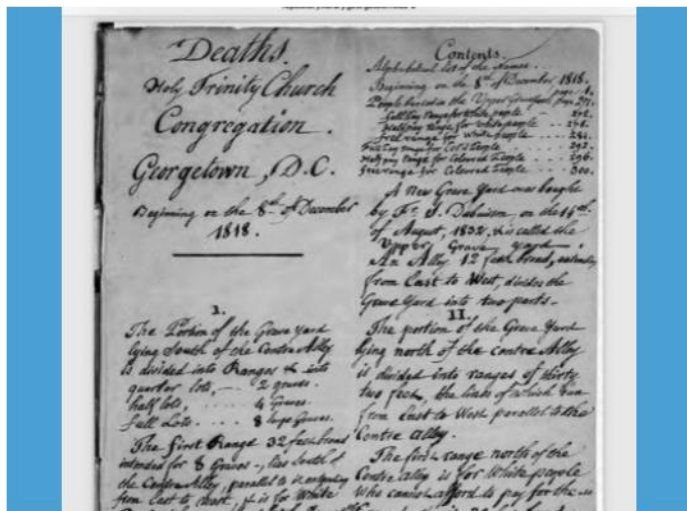 Deaths.
Holy Trinity Church
Congregation.
Georgetown, D.C.
Beginning on the 8th of December
1818.
I.
The Portion of the Grave Yard
lying South of the Centre Alley
is divided into Ranges & into
quarter lots, — 2 graves.
half lots, ..... 4 Graves.
full Lots. .... 8 large Graves.
The first Range 32 feet broad
intended for 8 Graves -, lies South of
the Centre Alley, parallel to it
from East to West, & is for White
Contents.
Alphabetical list of the Names...
Beginning on the 8th of December 1818.
page 1.
People buried in the Upper Graveyard, page 271.
Full pay range for White people
Half pay range for white people
Free range for White people
Full pay range for Col'd People
Half pay range for Coloured People ... 296.
Free range for Coloured People ... 300.
A New Grave Yard was bought
by Fr. S. Dubuisson, on the 14th
of August, 1832. It is called the
Upper Grave yard.
An Alley 12 feet broad,
from East to West, divides the
Grave Yard into two parts.
II.
The portion of the Grave Yard
lying north of the centre Alley
is divided into ranges of thirty
two feet, the lines of which run
from East to West parallel to the
Centre alley.
The first range north of the
Centre alley is for White people
who cannot afford to pay for the